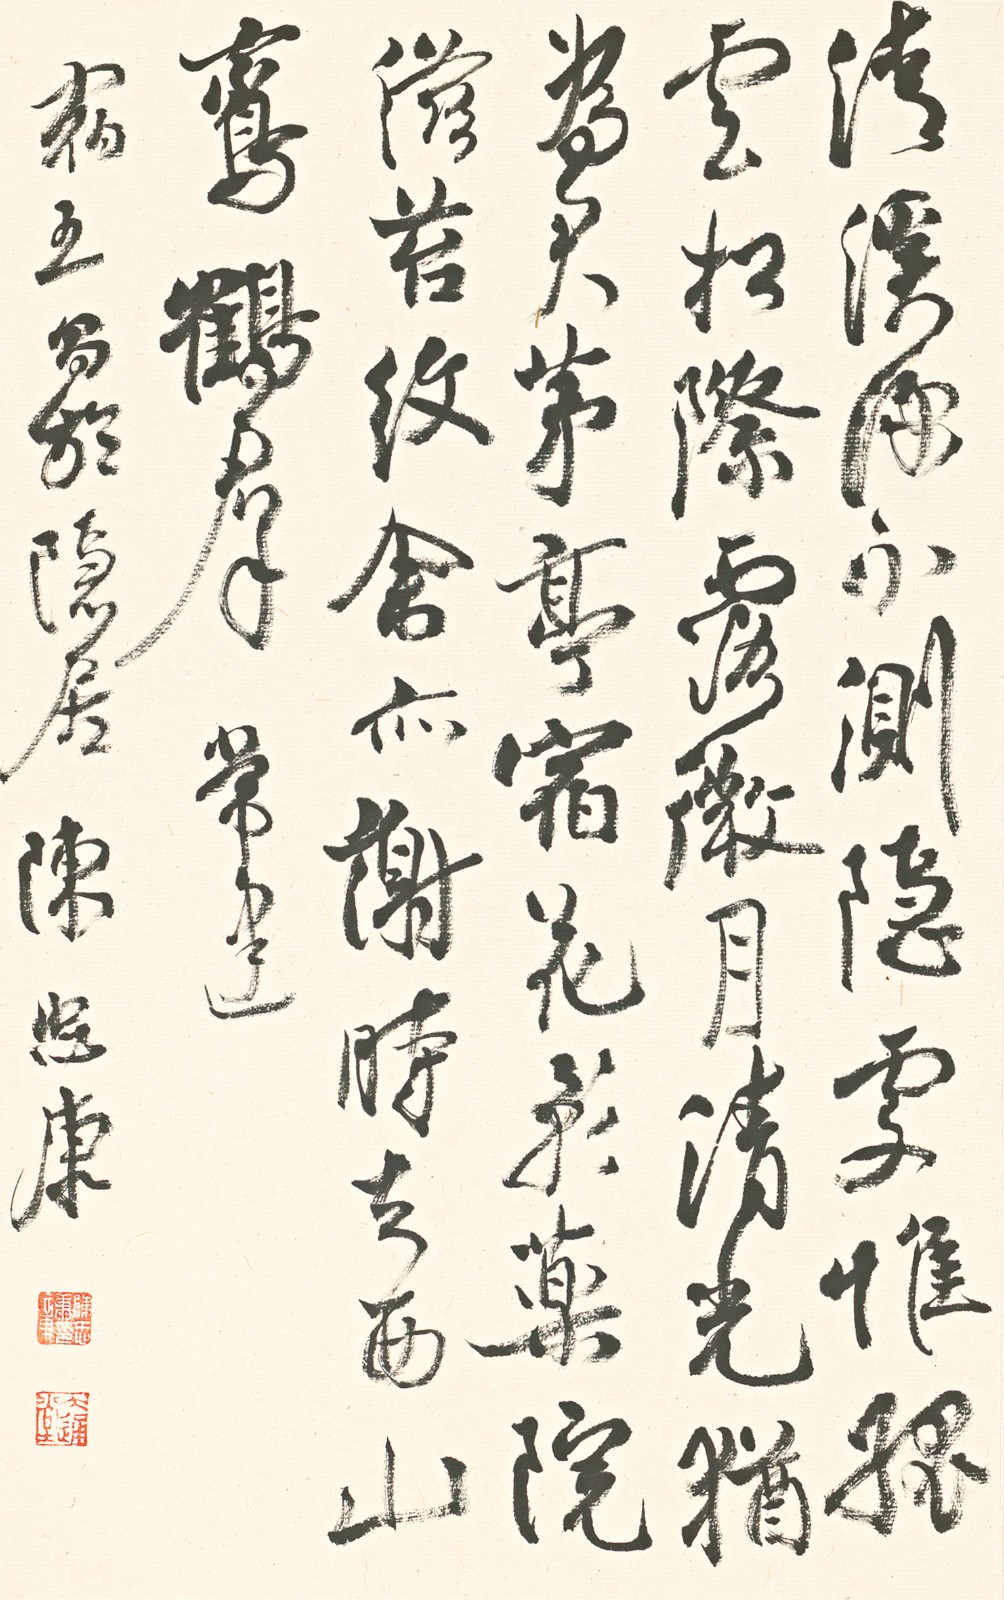 清溪深不測隱處惟孤
雲松際露微月清光猶
為君茅亭宿花影藥院
滋苔紋余亦謝時去西山
鸞鶴群 常建
宿王昌齡隱居 陳 康